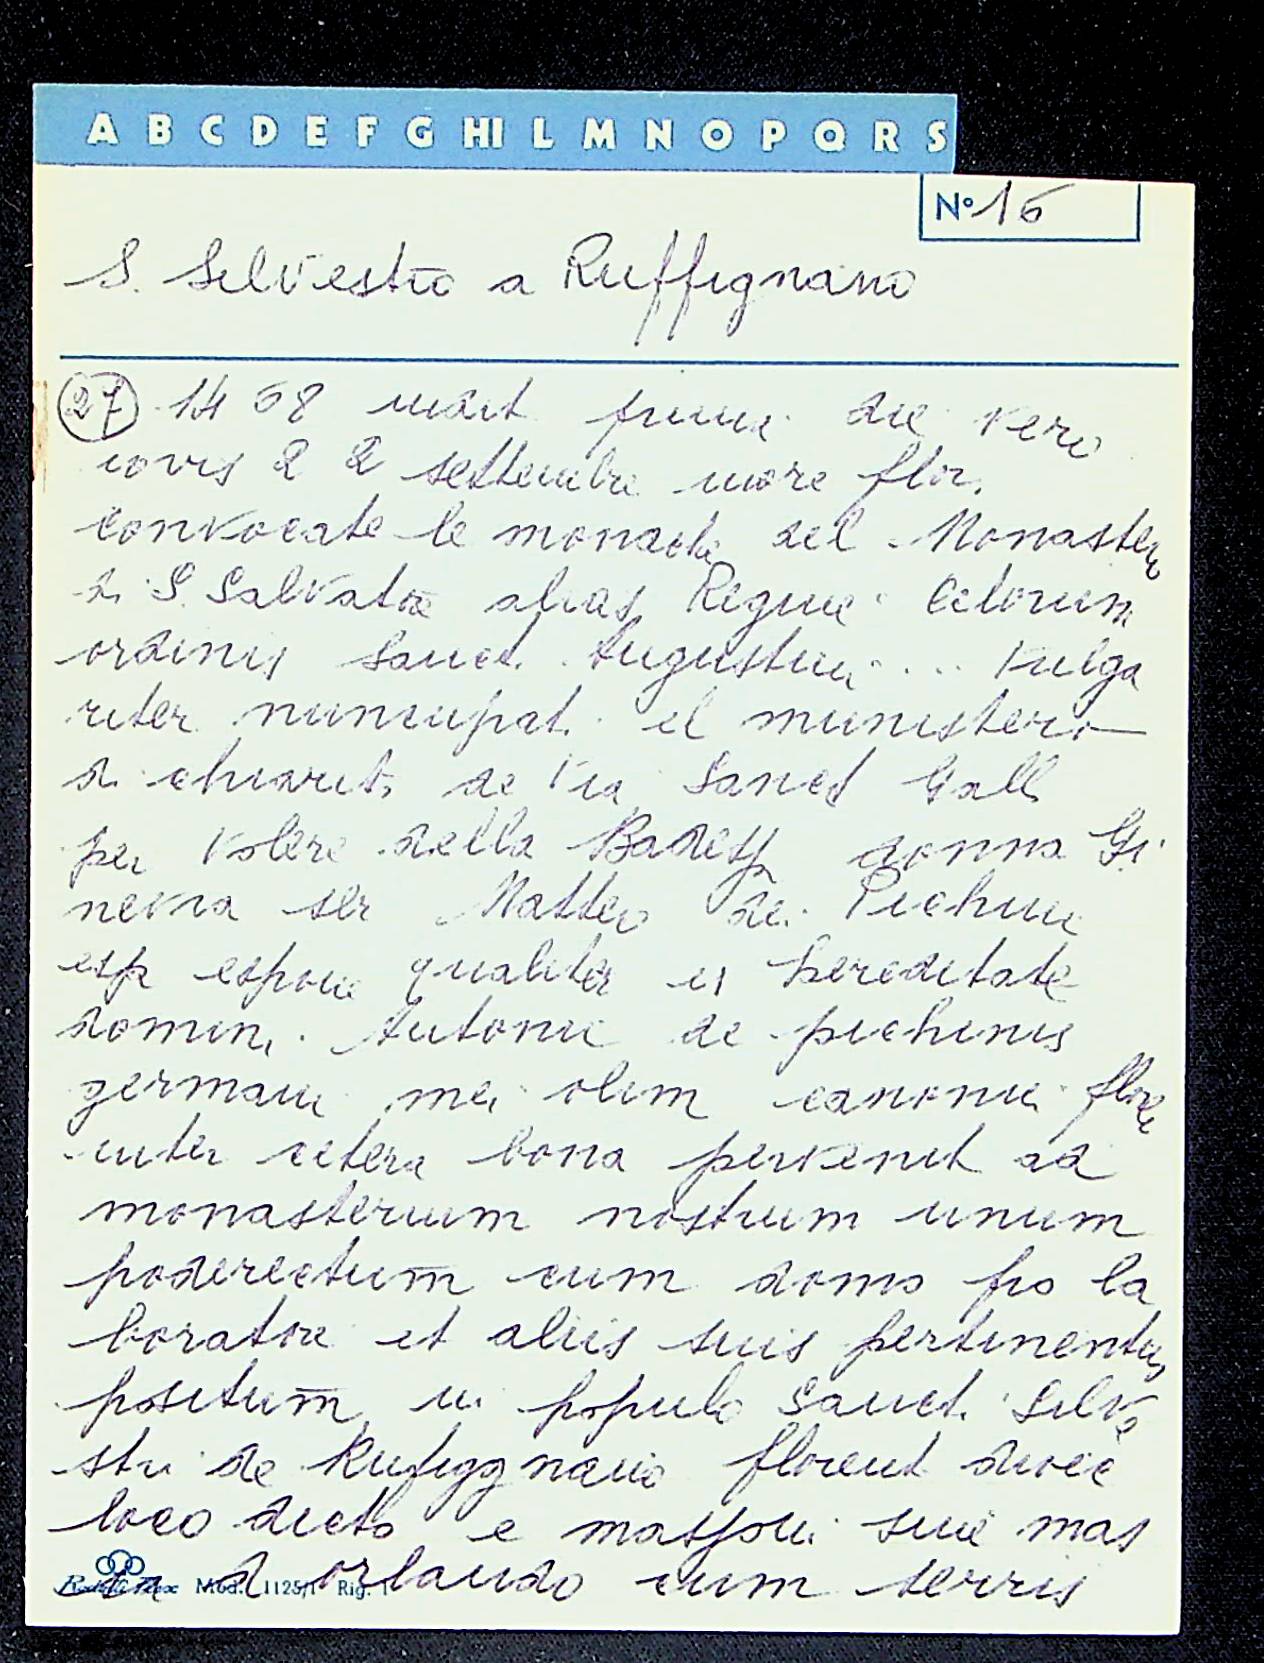 A B C D E F G HI L M N O P Q R S
N° 16
S. Silvestro a Ruffignano
27 1468 indit prima die vero
iovis 22 settembre more flor.
convocate le monache del Monastero
di S. Salvatore alias Regine Celorum
ordinis Sanct. Augustini .... vulga
riter nuncupat. el munistero
di chiarito de Via Sanct Galli
per volere della Badessa donna Gi
nevra ser Matteo de Pichini
espone qualiter ex hereditate
domini Antonii de pichinis
germani mei olim canonici flore
inter cetera bona pervenit ad
monasterium nostrum unum
poderectum cum domo pro la
boratore et aliis suis pertinentiis
positum in populo Sanct. Silve
stri de Rufiggnano florent dioce
loco dicto e massoni sive mas
d orlando cum terris
Mod. 1125/1 Rig. 1